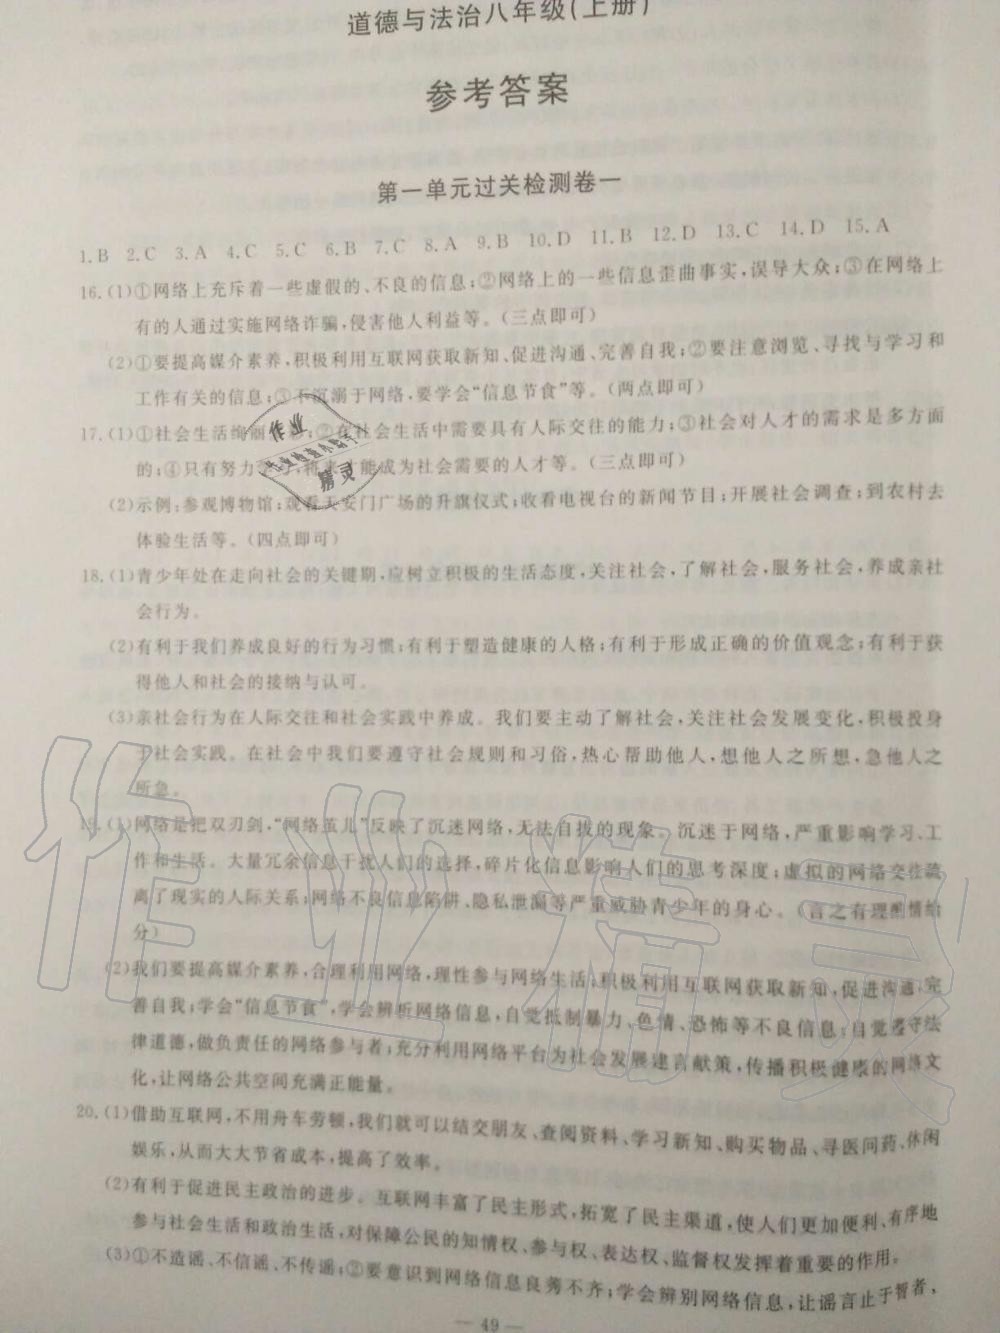 道德与法治八年级(上册)
参考答案
第一单元过关检测卷一
1.B 2.C 3.A 4.C 5.C 6.B 7.C 8.A 9.B 10.D 11.B 12.D 13.C 14.D 15.A
16.(1)①网络上充斥着一些虚假的、不良的信息;②网络上的一些信息歪曲事实,误导大众;③在网络上
有的人通过实施网络诈骗,侵害他人利益等。(三点即可)
(2)①要提高媒介素养,积极利用互联网获取新知、促进沟通、完善自我;②要注意浏览、寻找与学习和
工作有关的信息;③不沉溺于网络,要学会“信息节食”等。(两点即可)
17.(1)①社会生活绚丽多彩;②在社会生活中需要具有人际交往的能力;③社会对人才的需求是多方面
的;④只有努力学习,将来才能成为社会需要的人才等。(三点即可)
(2)示例:参观博物馆;观看天安门广场的升旗仪式;收看电视台的新闻节目;开展社会调查;到农村去
体验生活等。(四点即可)
18.(1)青少年处在走向社会的关键期,应树立积极的生活态度,关注社会,了解社会,服务社会,养成亲社
会行为。
(2)有利于我们养成良好的行为习惯;有利于塑造健康的人格;有利于形成正确的价值观念;有利于获
得他人和社会的接纳与认可。
(3)亲社会行为在人际交往和社会实践中养成。我们要主动了解社会,关注社会发展变化,积极投身
于社会实践。在社会中我们要遵守社会规则和习俗,热心帮助他人,想他人之所想,急他人之
所急。
19.(1)网络是把双刃剑,“网络茧儿”反映了沉迷网络,无法自拔的现象。沉迷于网络,严重影响学习、工
作和生活。大量冗余信息干扰人们的选择,碎片化信息影响人们的思考深度;虚拟的网络交往疏
离了现实的人际关系;网络不良信息陷阱、隐私泄漏等严重威胁青少年的身心。(言之有理酌情给
分)
(2)我们要提高媒介素养,合理利用网络,理性参与网络生活;积极利用互联网获取新知,促进沟通,完
善自我;学会“信息节食”,学会辨析网络信息,自觉抵制暴力、色情、恐怖等不良信息;自觉遵守法
律道德,做负责任的网络参与者;充分利用网络平台为社会发展建言献策,传播积极健康的网络文
化,让网络公共空间充满正能量。
20.(1)借助互联网,不用舟车劳顿,我们就可以结交朋友、查阅资料、学习新知、购买物品、寻医问药、休闲
娱乐,从而大大节省成本,提高了效率。
(2)有利于促进民主政治的进步。互联网丰富了民主形式,拓宽了民主渠道,使人们更加便利、有序地
参与社会生活和政治生活,对保障公民的知情权、参与权、表达权、监督权发挥着重要的作用。
(3)①不造谣、不信谣、不传谣;②要意识到网络信息良莠不齐;学会辨别网络信息,让谣言止于智者,
— 49 —
作业
精灵
作业精灵